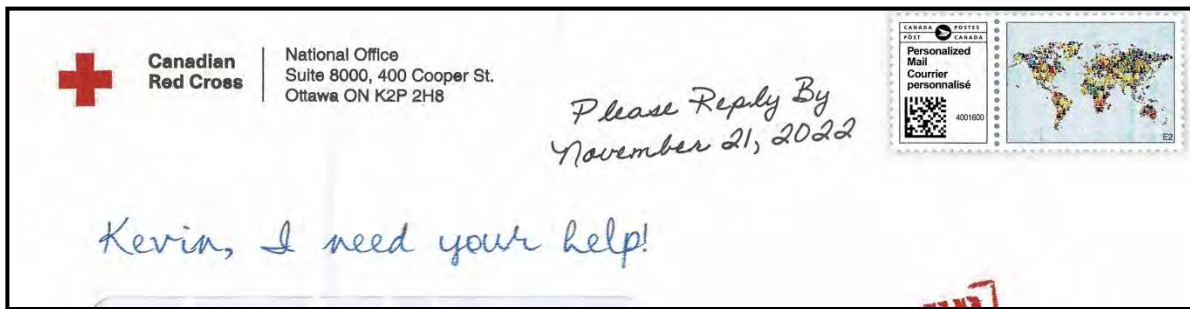 Canadian
Red Cross
National Office
Suite 8000, 400 Cooper St.
Ottawa ON K2P 2H8
Please Reply By
November 21, 2022
CANADA POSTES
POST CANADA
Personalized
Mail
Courrier
personnalisé
4001600
E2
Kevin, I need your help!